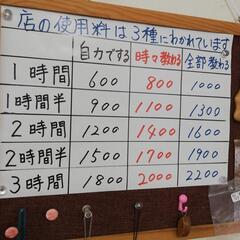 店の使用料は3種にわかれています
自力でする 時々教わる 全部教わる
1時間 600 800 1000
1時間半 900 1100 1300
2時間 1200 1400 1600
2時間半 1500 1700 1900
3時間 1800 2000 2200